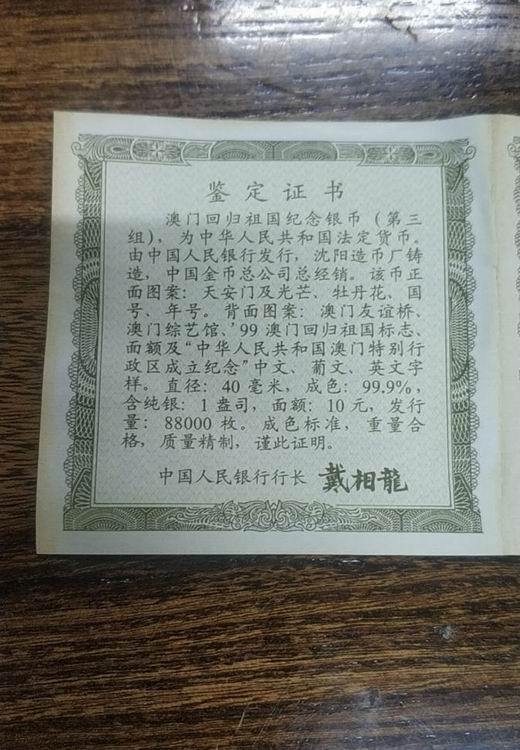 鉴定证书
澳门回归祖国纪念银币（第三
组），为中华人民共和国法定货币。
由中国人民银行发行，沈阳造币厂铸
造，中国金币总公司总经销。该币正
面图案：天安门及光芒、牡丹花、国
号、年号。背面图案：澳门友谊桥、
澳门综艺馆、'99 澳门回归祖国标志、
面额及“中华人民共和国澳门特别行
政区成立纪念”中文、葡文、英文字
样。直径：40 毫米，成色：99.9%，
含纯银：1 盎司，面额：10 元，发行
量：88000 枚。成色标准，重量合
格，质量精制，谨此证明。
中国人民银行行长 戴相龍